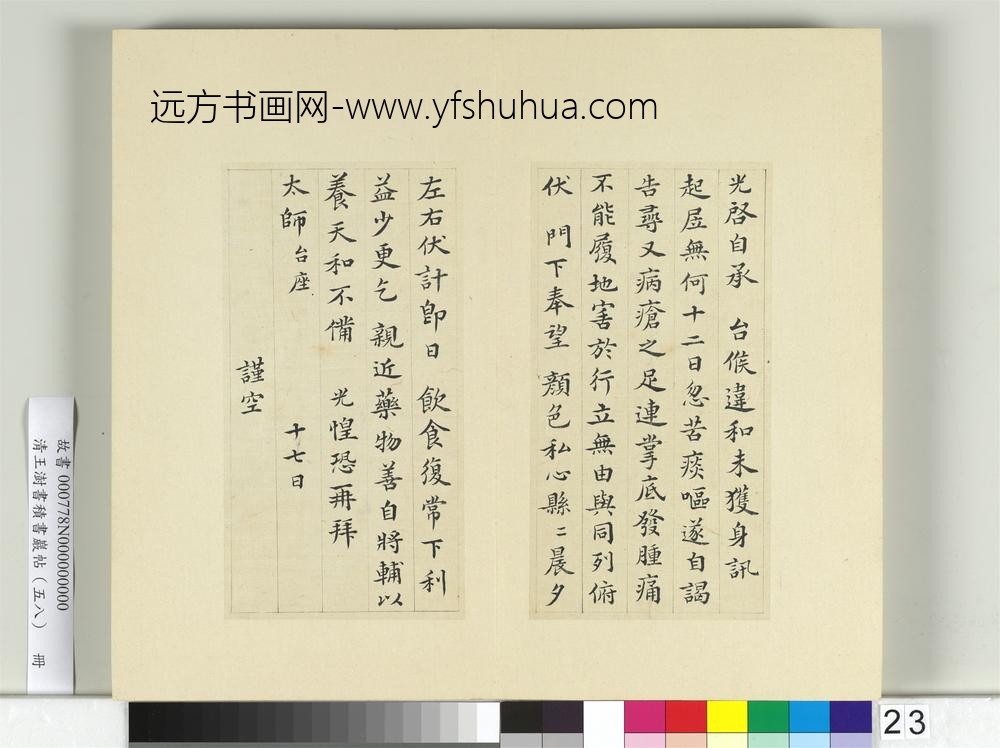 远方书画网-www.yfshuhua.com
光啓自承　台候違和未獲身訊
起居無何十二日忽苦痰嘔遂自謁
告尋又病瘡之足連掌底發腫痛
不能履地害於行立無由與同列俯
伏　門下奉望　顏色私心縣〻晨夕
左右伏計即日　飲食復常下利
益少更乞　親近藥物善自將輔以
養天和不備　光惶恐再拜
太師台座　十七日
謹空
故書 000778N000000000
清王澍書積書巖帖（五八）　冊
23